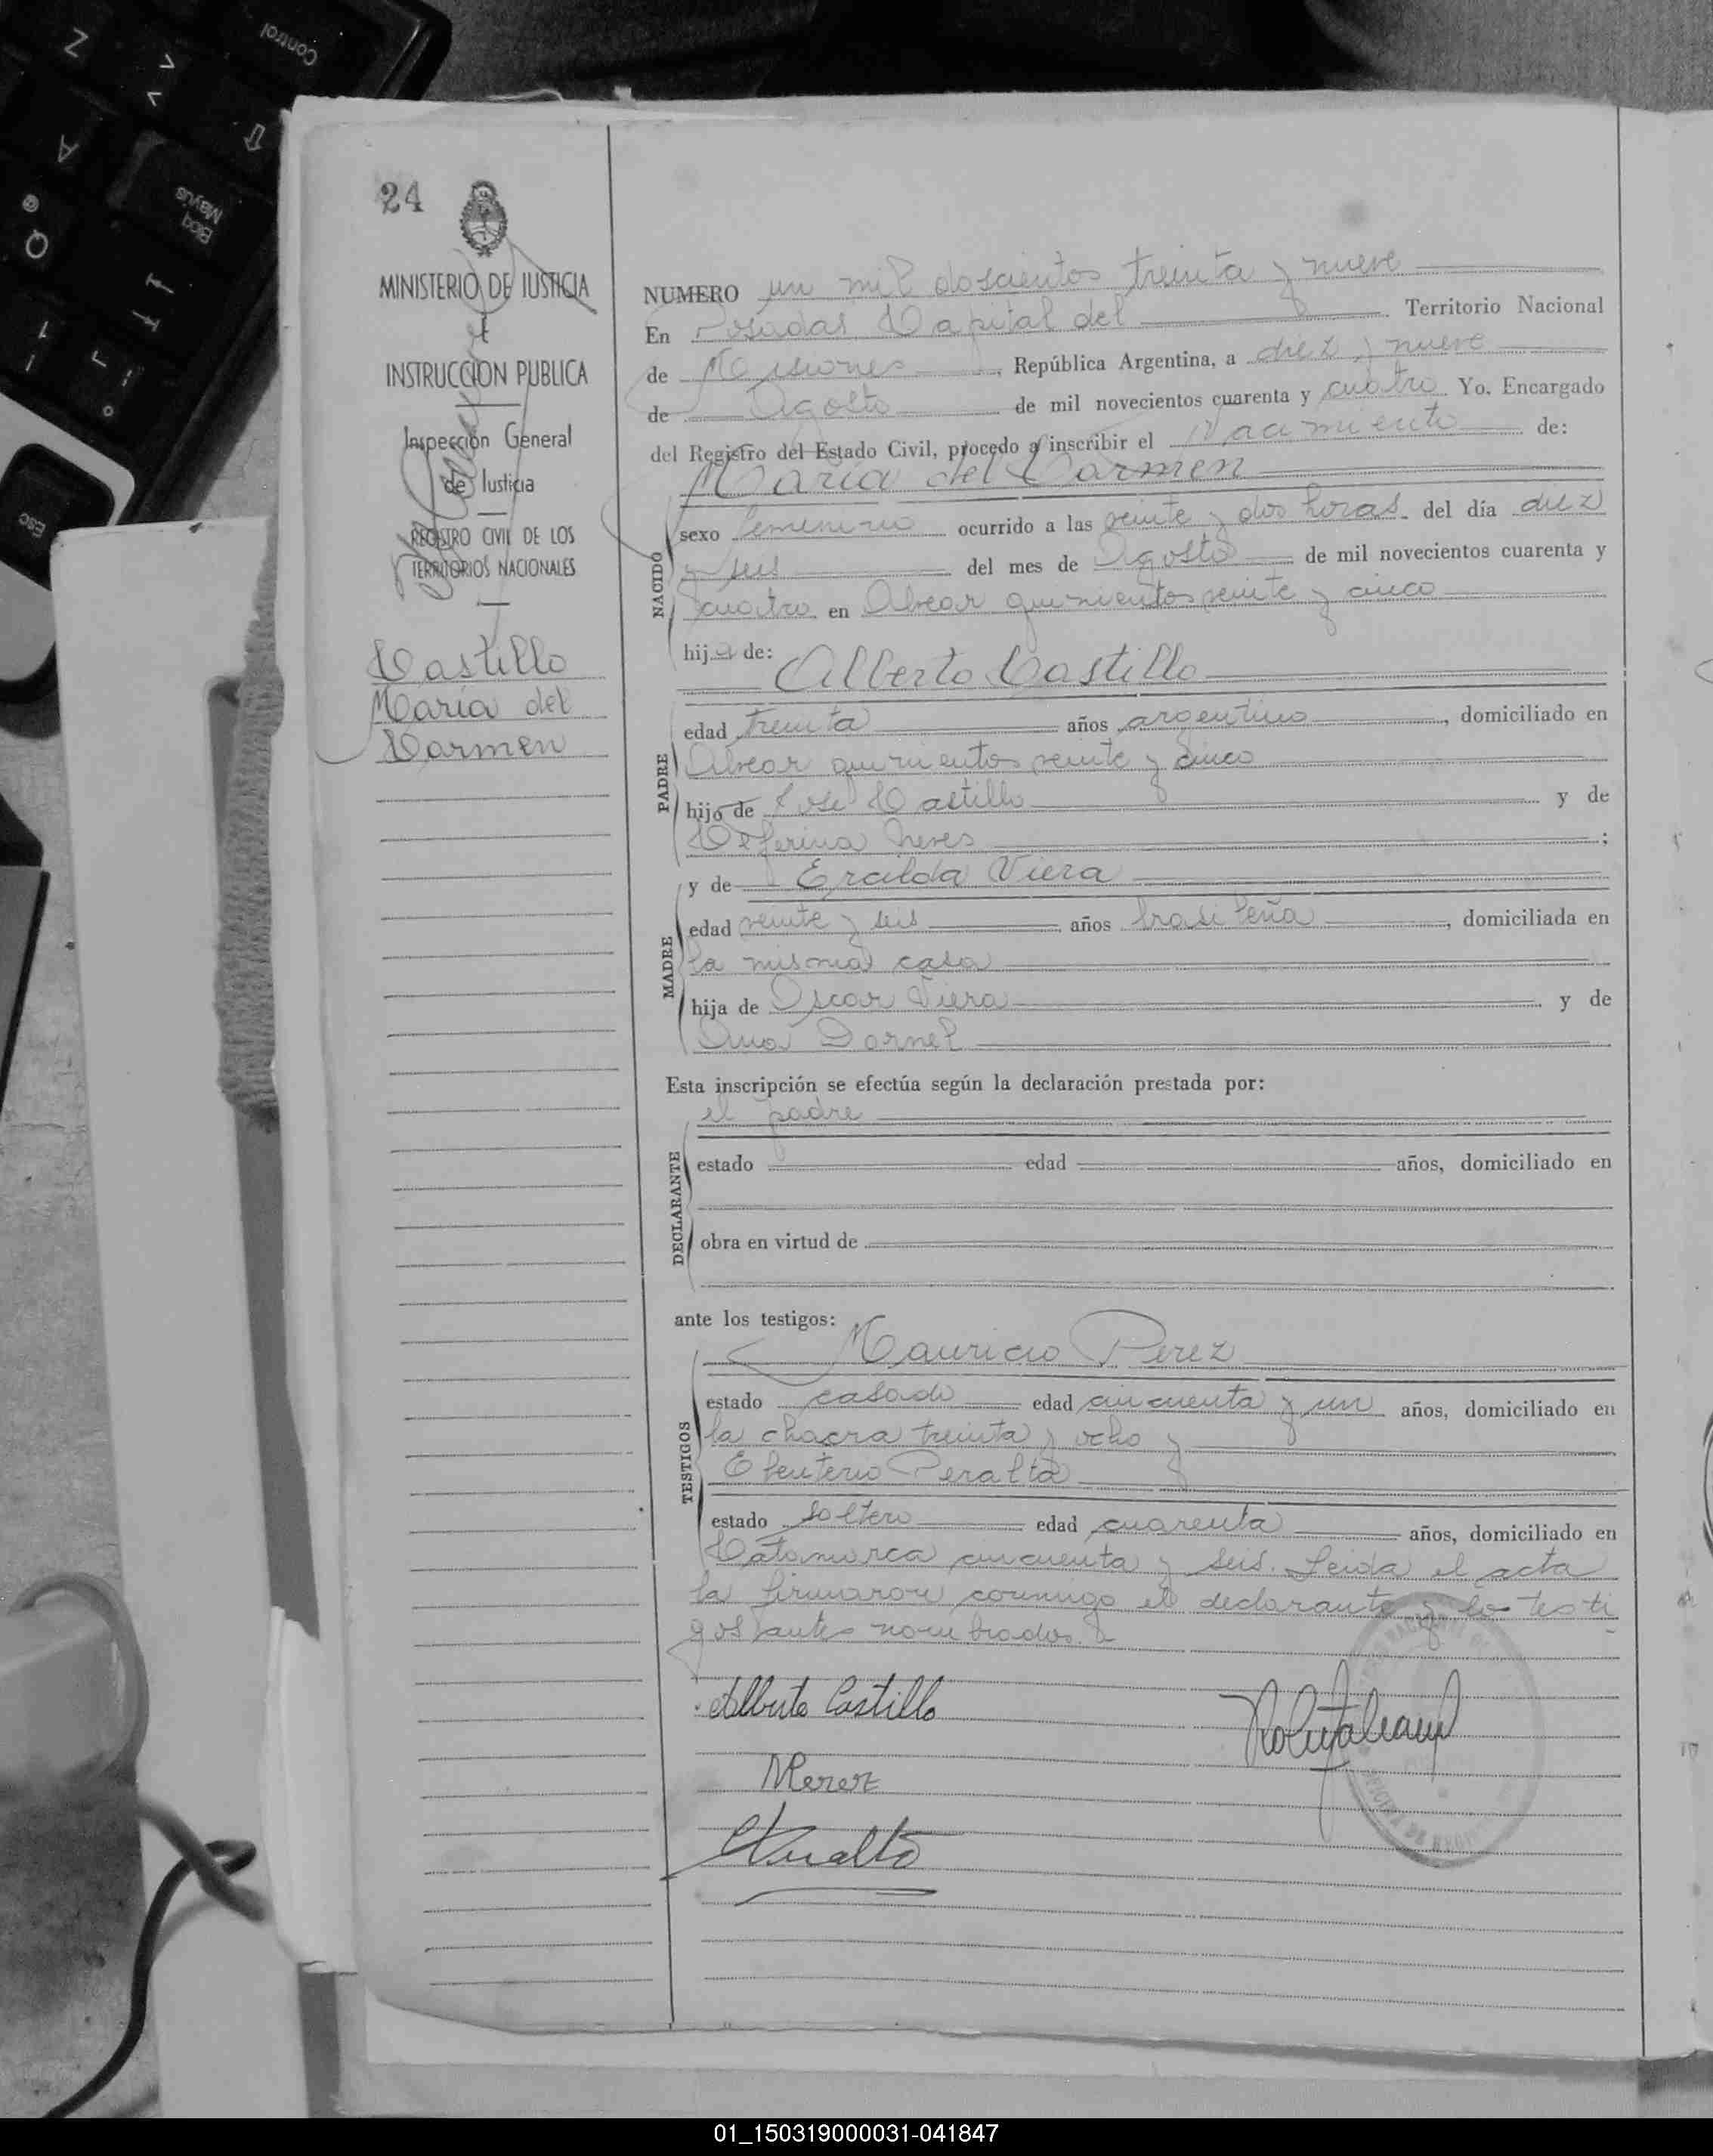 Control
Z
A
Bloq
Mayús
@
Q
Esc
24
MINISTERIO DE JUSTICIA
E
INSTRUCCION PUBLICA
Inspección General
de Justicia
REGISTRO CIVIL DE LOS
TERRITORIOS NACIONALES
Castillo
María del
Carmen
NUMERO un mil doscientos treinta y nueve
En Posadas, Capital del Territorio Nacional
de Misiones, República Argentina, a diez y nueve
de Agosto de mil novecientos cuarenta y cuatro Yo, Encargado
del Registro del Estado Civil, procedo a inscribir el Nacimiento de:
María del Carmen
NACIDO
sexo femenino ocurrido a las veinte y dos horas del día diez
y seis del mes de Agosto de mil novecientos cuarenta y
cuatro en Alvear quinientos veinte y cinco
hija de:
Alberto Castillo
PADRE
edad treinta años argentino, domiciliado en
Alvear quinientos veinte y cinco
hijo de José Castillo y de
Ceferina Neves;
y de Ercilda Viera
MADRE
edad veinte y seis años brasileña, domiciliada en
la misma casa
hija de Oscar Viera y de
Ana Dornel
Esta inscripción se efectúa según la declaración prestada por:
el padre
DECLARANTE
estado edad años, domiciliado en
obra en virtud de
ante los testigos:
Mauricio Perez
TESTIGOS
estado casado edad cincuenta y un años, domiciliado en
la chacra treinta y ocho y
Eleuterio Peralta
estado soltero edad cuarenta años, domiciliado en
Catamarca cincuenta y seis. Leida el acta
la firmaron conmigo el declarante y los testi
gos antes nombrados.
Alberto Castillo
MPerez
EPeralta
01_150319000031-041847